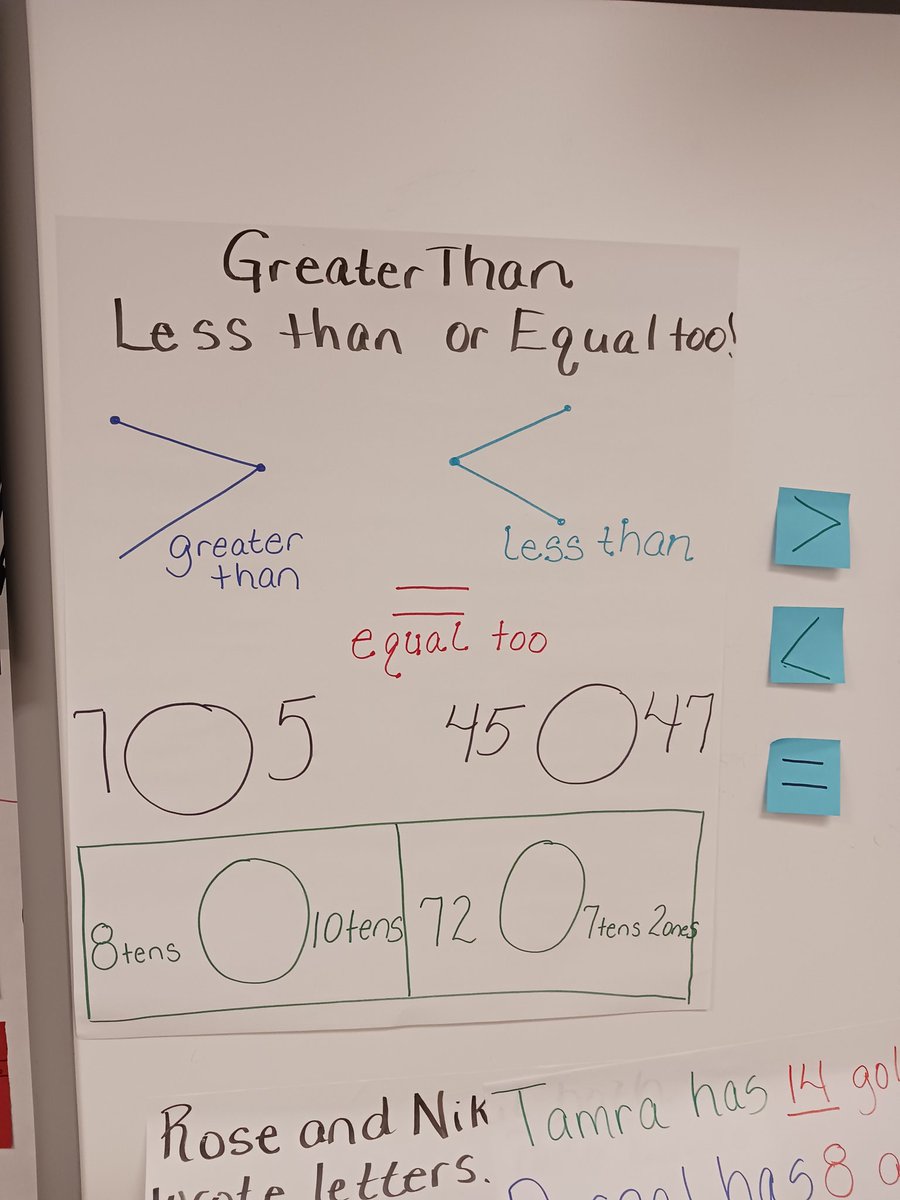 Greater Than
Less than or Equal too!
> <
greater than
less than
=
equal too
7 5
45 47
8tens 10tens
72 7tens 2ones
>
<
=
Rose and Nik
wrote letters.
Tamra has 14
has 8